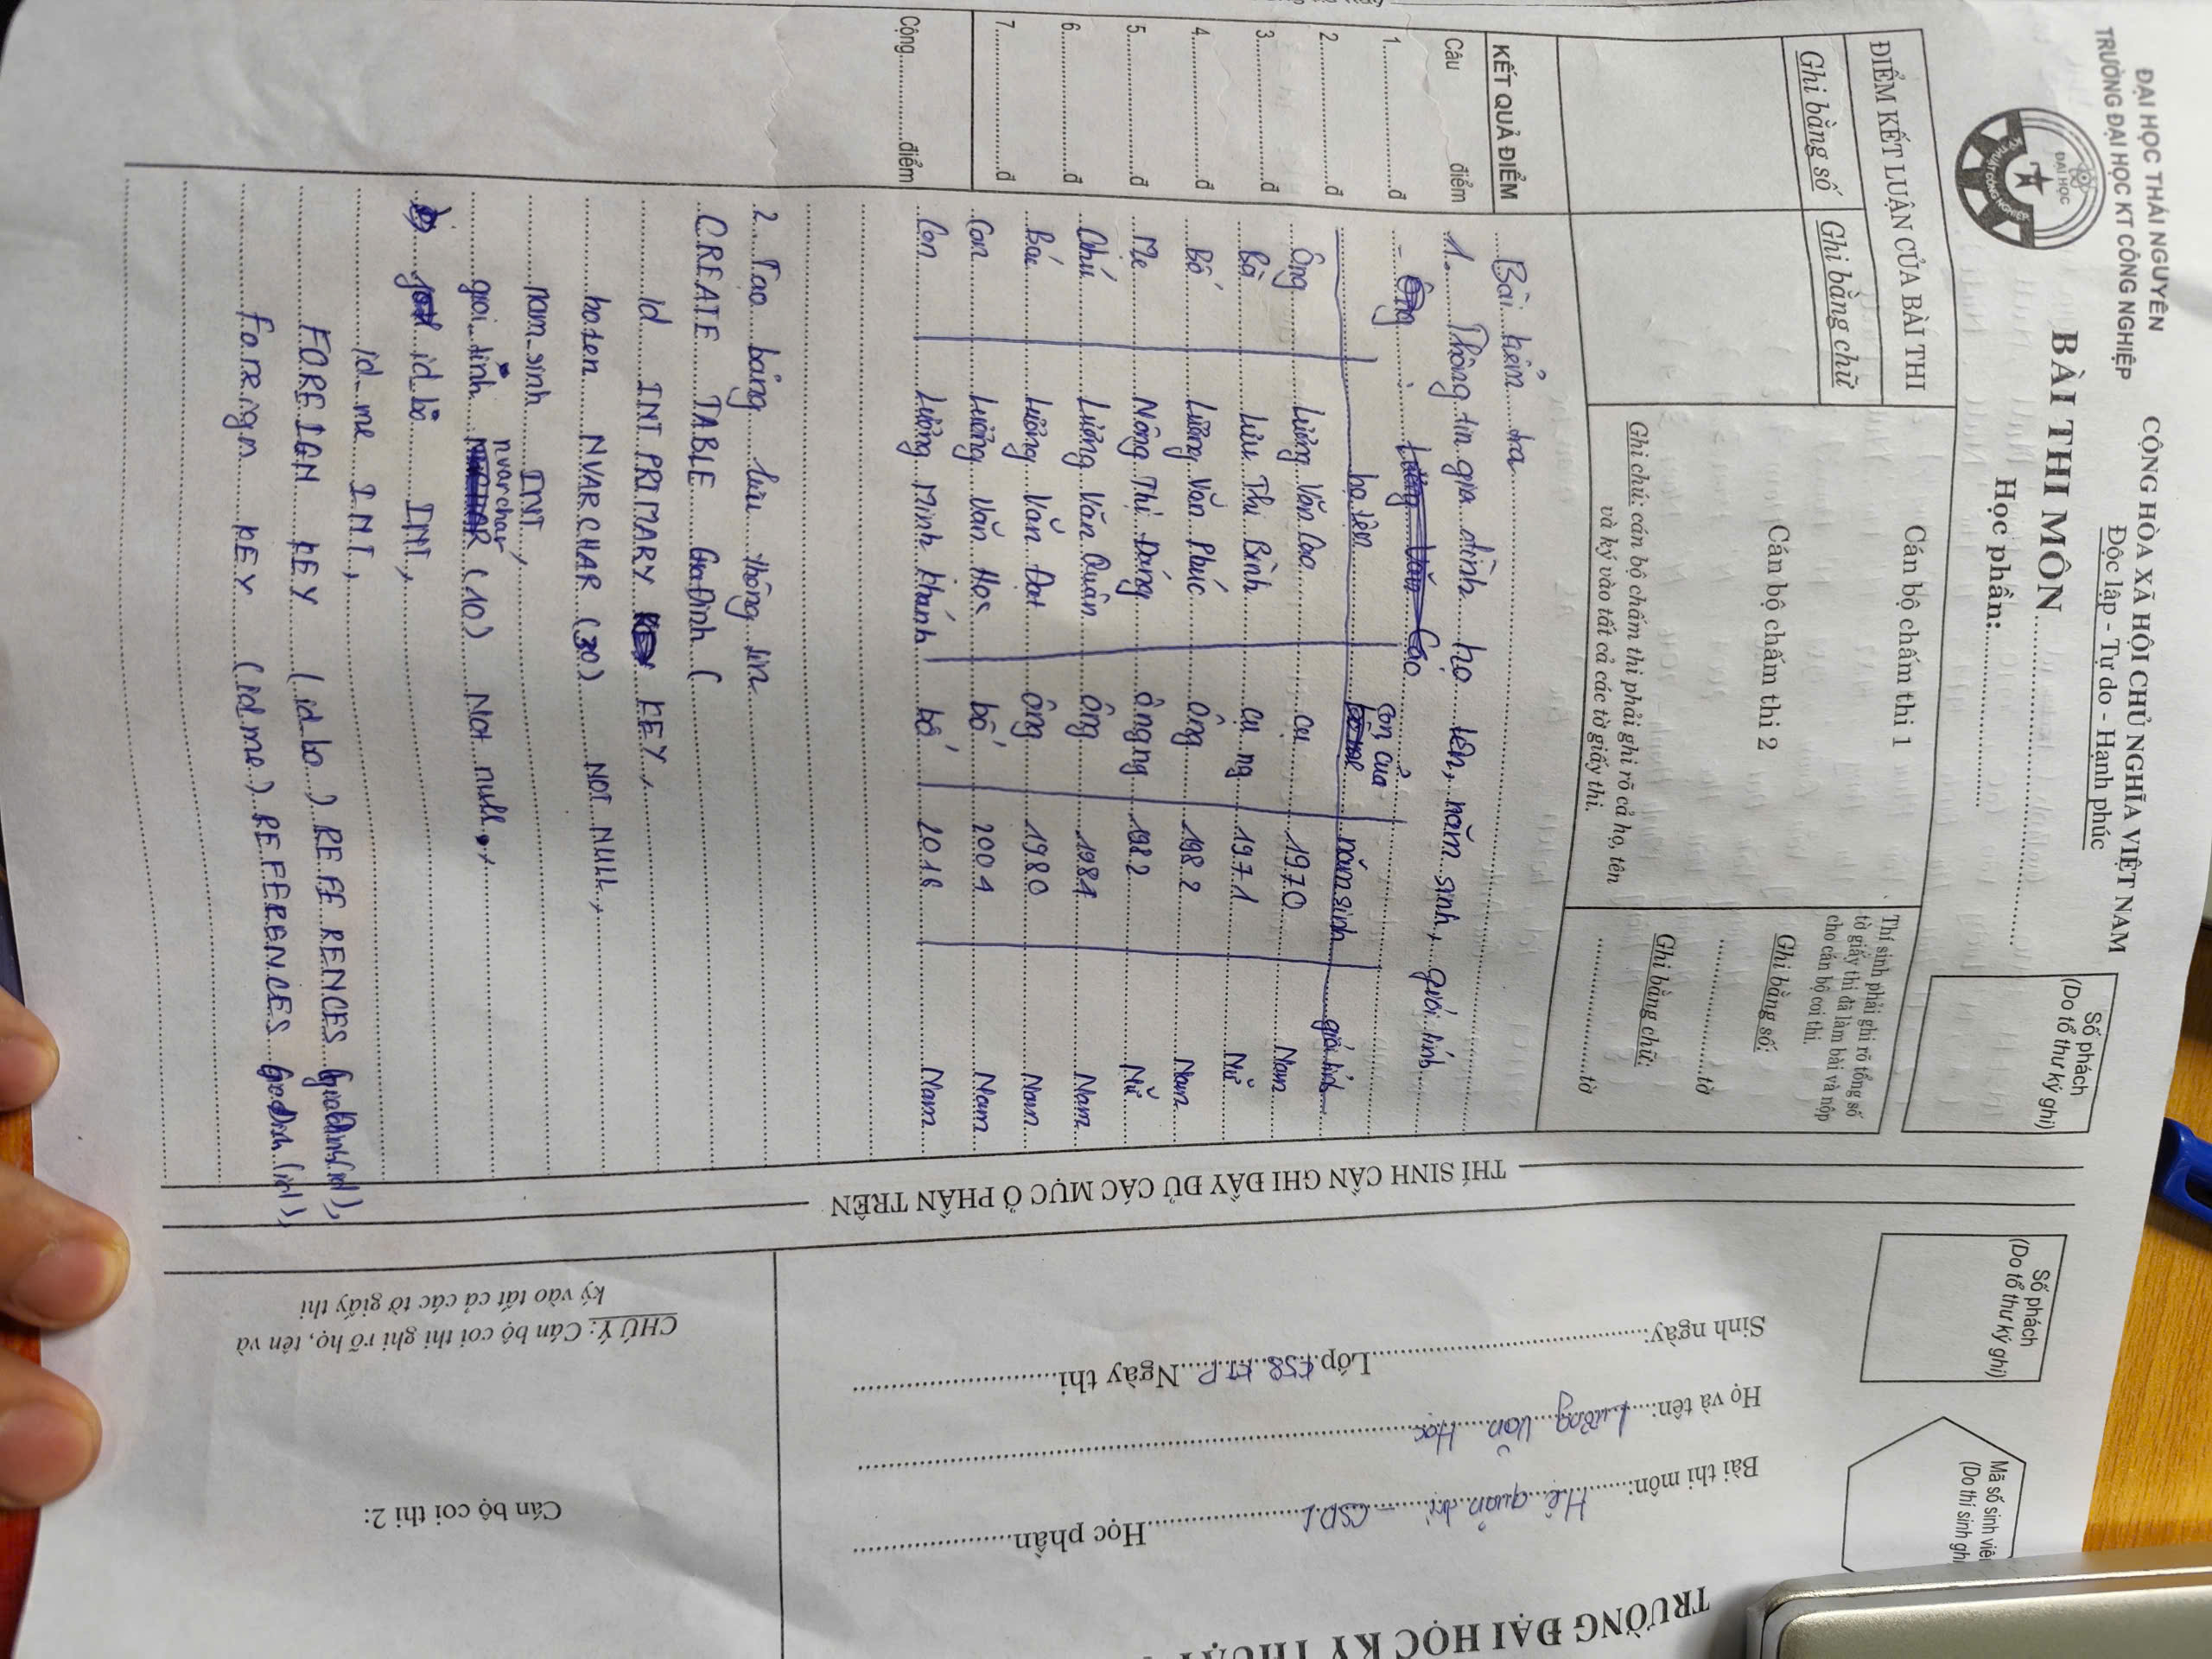 ĐẠI HỌC THÁI NGUYÊN
TRƯỜNG ĐẠI HỌC KT CÔNG NGHIỆP
CỘNG HÒA XÃ HỘI CHỦ NGHĨA VIỆT NAM
Độc lập - Tự do - Hạnh phúc
BÀI THI MÔN
Học phần:
Số phách
(Do tổ thư ký ghi)
ĐẠI HỌC
ĐIỂM KẾT LUẬN CỦA BÀI THI
Ghi bằng số
Ghi bằng chữ
Cán bộ chấm thi 1
Cán bộ chấm thi 2
Ghi chú: cán bộ chấm thi phải ghi rõ cả họ, tên
và ký vào tất cả các tờ giấy thi.
Thí sinh phải ghi rõ tổng số
tờ giấy thi đã làm bài và nộp
cho cán bộ coi thi.
Ghi bằng số:
tờ
Ghi bằng chữ:
tờ
KẾT QUẢ ĐIỂM
Câu điểm
1 đ
2 đ
3 đ
4 đ
5 đ
6 đ
7 đ
Cộng điểm
Bài kiểm tra
1. Thông tin gia đình họ tên, năm sinh, giới tính
họ tên con của năm sinh giới tính
Ông Lường Văn Cao cụ 1970 Nam
Bà Lưu Thị Bình cụ ng 1971 Nữ
Bố Lường Văn Phúc ông 1982 Nam
Mẹ Nông Thị Dáng ông ng 1982 Nữ
Chú Lường Văn Quân ông 1984 Nam
Bác Lường Văn Đạt ông 1980 Nam
Con Lường Văn Học bố 2004 Nam
Con Lường Minh Khánh bố 2016 Nam
2. Tạo bảng lưu thông tin
CREATE TABLE GiaĐình (
id INT PRIMARY KEY,
hoten NVARCHAR (30) NOT NULL,
nam_sinh INT,
gioi_tinh nvarchar (10) Not null,
id_bo INT,
id_me INT,
FOREIGN KEY (id_bo) REFERENCES Giađình(id),
Foreign KEY (id_me) REFERENCES Giađình(id),
THÍ SINH CẦN GHI ĐẦY ĐỦ CÁC MỤC Ở PHẦN TRÊN
TRƯỜNG ĐẠI HỌC KỸ THUẬT
Mã số sinh viê
(Do thí sinh gh
Số phách
(Do tổ thư ký ghi)
Bài thi môn: Hệ quản trị - CSDL Học phần
Họ và tên: Lường Văn Học
Sinh ngày: Lớp K58 KTP Ngày thi
Cán bộ coi thi 2:
CHÚ Ý: Cán bộ coi thi ghi rõ họ, tên và
ký vào tất cả các tờ giấy thi